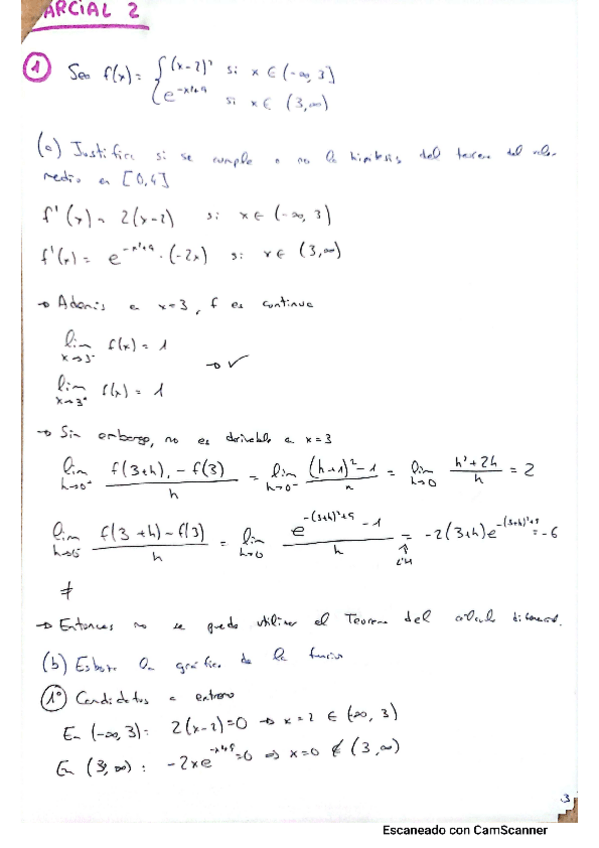 PARCIAL 2
① Sea f(x) = { (x-2)² si x ∈ (-∞, 3]
e^(-x²+9) si x ∈ (3, ∞)
(a) Justifica si se cumple o no la hipótesis del teorema del valor
medio en [0,4]
f'(x) = 2(x-2) si x ∈ (-∞, 3)
f'(x) = e^(-x²+9) · (-2x) si x ∈ (3, ∞)
→ Además en x=3, f es continua
lim x→3⁻ f(x) = 1
→ ✓
lim x→3⁺ f(x) = 1
→ Sin embargo, no es derivable en x=3
lim h→0⁻ (f(3+h) - f(3))/h = lim h→0⁻ ((h+1)² - 1)/h = lim h→0 (h²+2h)/h = 2
lim h→0 (f(3+h) - f(3))/h = lim h→0 (e^(-(3+h)²+9) - 1)/h = -2(3+h)e^(-(3+h)²+9) = -6
↑
L'H
≠
→ Entonces no se puede utilizar el Teorema del cálculo
(b) la gráfica de la función
①° Candidatos a extremo
En (-∞, 3): 2(x-2)=0 → x=2 ∈ (-∞, 3)
En (3, ∞): -2xe^(-x²+9)=0 ⇒ x=0 ∉ (3, ∞)
3
Escaneado con CamScanner